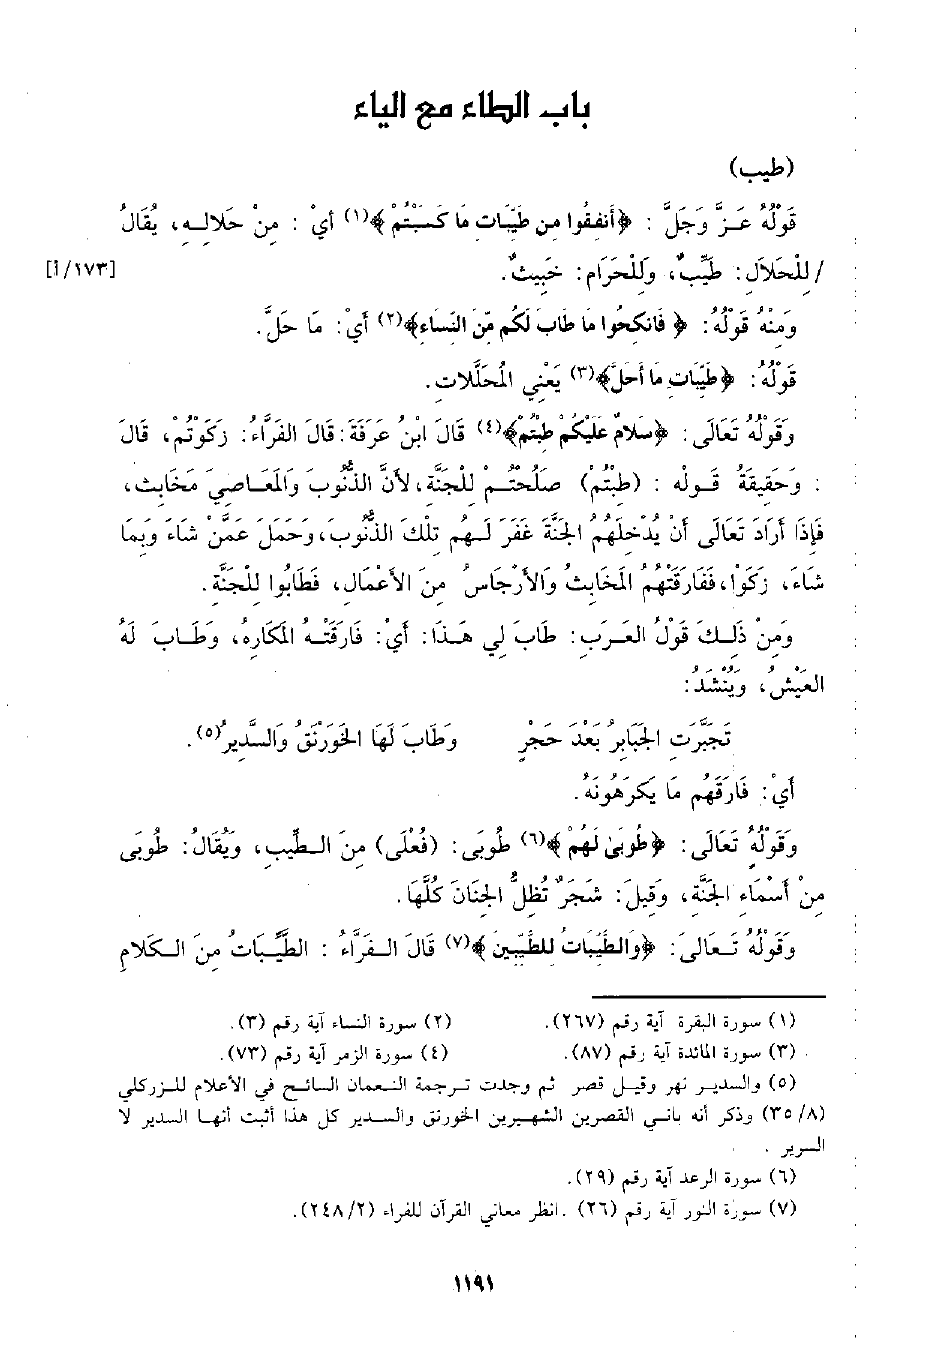 باب الطاء مع الياء
(طيب)
قَوْلُهُ عَزَّ وَجَلَّ : ﴿أَنفِقُوا مِن طَيِّبَات مَا كَسَبْتُمْ﴾(١) أَيْ : مِنْ حَلاَلِهِ، يُقَالُ
/ لِلْحَلاَلِ: طَيِّبٌ، وَلِلْحَرَامِ: خَبِيثٌ.
[١٧٣/أ]
وَمِنْهُ قَوْلُهُ: ﴿ فَانكِحُوا مَا طَابَ لَكُم مِّنَ النِّسَاء﴾(٢) أَيْ: مَا حَلَّ.
قَوْلُهُ: ﴿طَيِّبَاتِ مَا أَحَلَّ﴾(٣) يَعْنِي الْمُحَلَّلاتِ.
وَقَوْلُهُ تَعَالَى: ﴿سَلامٌ عَلَيْكُمْ طِبْتُمْ﴾(٤) قَالَ ابْنُ عَرَفَةَ: قَالَ الفَرَّاءُ: زَكَوْتُمْ، قَالَ
: وَحَقِيقَةُ قَوْلِه : (طِبْتُمْ) صَلُحْتُمْ لِلْجَنَّة، لأَنَّ الذُّنُوبَ وَالْمَعَاصِيَ مَخَابِث،
فَإِذَا أَرَادَ تَعَالَى أَنْ يُدْخِلَهُمُ الجَنَّةَ غَفَرَ لَهُم تِلْكَ الذُّنُوبَ، وَحَمَلَ عَمَّنْ شَاءَ وَبِمَا
شَاءَ، زَكَوْا، فَفَارَقَتْهُمُ الْمَخَابِثُ وَالأَرْجَاسُ مِنَ الأَعْمَالِ، فَطَابُوا لِلْجَنَّةِ.
وَمِنْ ذَلِكَ قَوْلُ العَرَبِ: طَابَ لِي هَذَا: أَيْ: فَارَقَتْهُ الْمَكَارِهُ، وَطَابَ لَهُ
العَيْشُ، وَيُنْشَدُ:
تَجَبَّرَتِ الجَبَابِرُ بَعْدَ حَجْرٍ وَطَابَ لَهَا الْخَوَرْنَقُ وَالسَّدِيرُ(٥).
أَيْ: فَارَقَهُم مَا يَكرَهُونَهُ.
وَقَوْلُهُ تَعَالَى: ﴿طُوبَىٰ لَهُمْ ﴾(٦) طُوبَى: (فُعْلَى) مِنَ الطِّيبِ، وَيُقَالُ: طُوبَى
مِنْ أَسْمَاءِ الجَنَّة، وَقِيلَ: شَجَرٌ تُظِلُّ الجِنَانَ كُلَّهَا.
وَقَوْلُهُ تَعَالَى: ﴿وَالطَّيِّبَاتُ لِلطَّيِّبِينَ ﴾(٧) قَالَ الفَرَّاءُ : الطَّيِّبَاتُ مِنَ الكَلامِ
(١) سورة البقرة آية رقم (٢٦٧). (٢) سورة النساء آية رقم (٣).
(٣) سورة المائدة آية رقم (٨٧). (٤) سورة الزمر آية رقم (٧٣).
(٥) والسدير نهر وقيل قصر ثم وجدت ترجمة النعمان السائح في الأعلام للزركلي
(٣٥/٨) وذكر أنه باني القصرين الشهيرين الخورنق والسدير كل هذا أثبت أنها السدير لا
السرير .
(٦) سورة الرعد آية رقم (٢٩).
(٧) سورة النور آية رقم (٢٦) .انظر معاني القرآن للفراء (٢٤٨/٢).
١١٩١